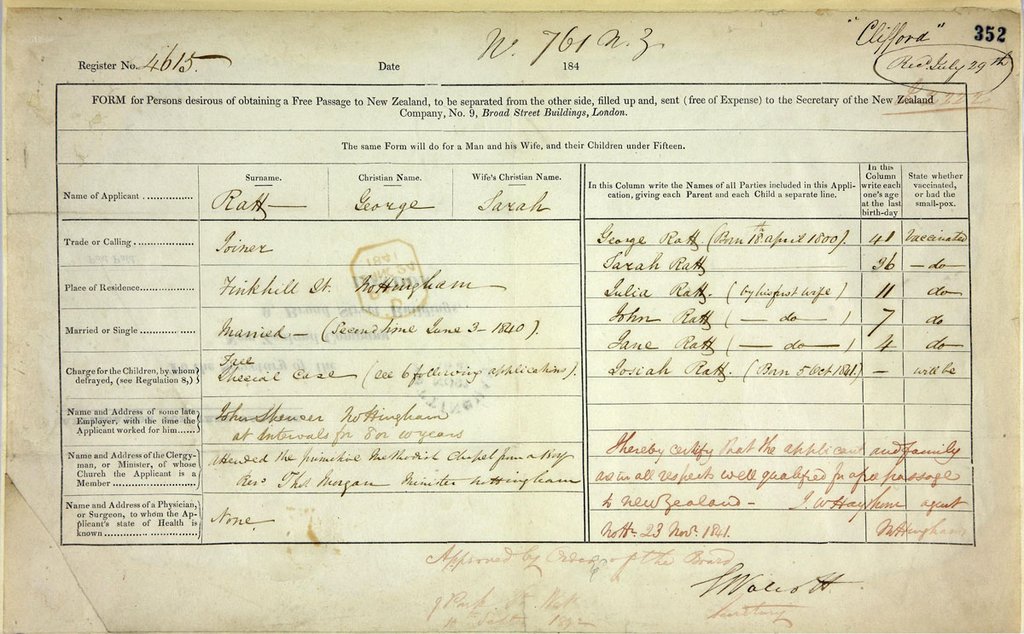 "Clifford" 352
Nº. 761 N. Z
Register No. 4615. Date 184
Recd. July 29th
FORM for Persons desirous of obtaining a Free Passage to New Zealand, to be separated from the other side, filled up and, sent (free of Expense) to the Secretary of the New Zealand
Company, No. 9, Broad Street Buildings, London.
The same Form will do for a Man and his Wife, and their Children under Fifteen.
Surname. Christian Name. Wife's Christian Name.
Name of Applicant Ratt George Sarah
Trade or Calling Joiner
Place of Residence Finkhill St. Nottingham
Married or Single Married – (Second time June 3– 1840).
Charge for the Children, by whom
defrayed, (see Regulation 8,)
Free
Special Case (see 6 following applications).
Name and Address of some late
Employer, with the time the
Applicant worked for him
John Spencer Nottingham
at intervals for 8 or 10 years
Name and Address of the Clergy-
man, or Minister, of whose
Church the Applicant is a
Member
Attended the primitive Methodist Chapel from a Boy
Revd. Thos Morgan Minister Nottingham
Name and Address of a Physician,
or Surgeon, to whom the Ap-
plicant's state of Health is
known
None
In this Column write the Names of all Parties included in this Appli-
cation, giving each Parent and each Child a separate line.
In this
Column
write each
one's age
at the last
birth-day
State whether
vaccinated,
or had the
small-pox.
George Ratt (Born 18th april 1800). 41 Vaccinated
Sarah Ratt 36 – do –
Julia Ratt. (by his first wife) 11 do
John Ratt ( — do — ) 7 do
Jane Ratt ( — do — ) 4 do
Josiah Ratt. (Born 5 Oct 1841.) – will be
I hereby certify that the applicant and family
as in all respects well qualified for a free passage
to new Zealand – agent
Nottm. 23 Novr. 1841. Nottingham
Approved by Order of the Board
Secretary